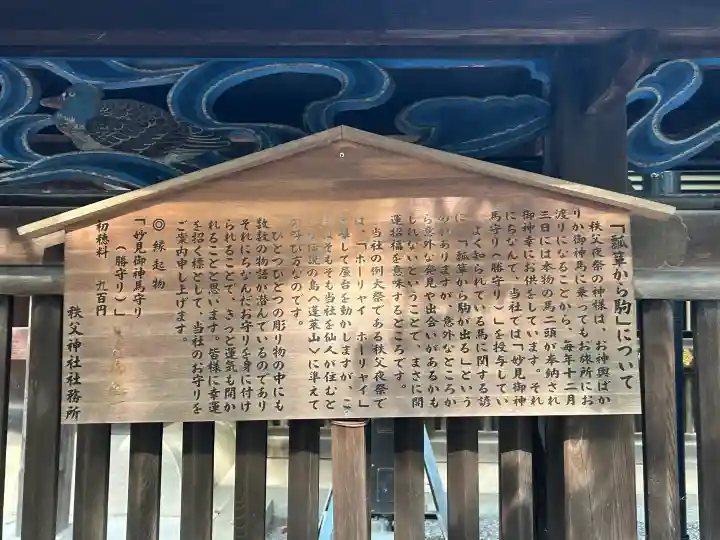 「瓢箪から駒」について
秩父夜祭の神様は、お神輿ばか
りか御神馬に乗ってもお旅所にお
渡りになることから、毎年十二月
三日には本物の馬二頭が奉納され
御神幸にお供をしています。それ
にちなんで、当社では「妙見御神
馬守り（勝守り）」を授与してい
よく知られている馬に関する諺
に、「瓢箪から駒が出る」という
のがありますが、意外なところか
ら意外な発見や出会いがあるかも
しれないということで、まさに開
運招福を意味するところです。
当社の例大祭である秩父夜祭で
は、「ホーリャイ ホーリャイ」
して屋台を動かしますが、こ
はそもそも当社を仙人が住むと
伝説の島へ蓬莱山〉に準えて
の呼び方なのです。
ひとつひとつの彫り物の中にも
数数の物語が潜んでいるのであり
それにちなんだお守りを身に付け
られることで、きっと運気も開か
れることと思います。皆様に幸運
を招く標として、当社のお守りを
ご案内申し上げます。
◎縁起物
「妙見御神馬守り
（勝守り）」
初穂料 九百円
秩父神社社務所